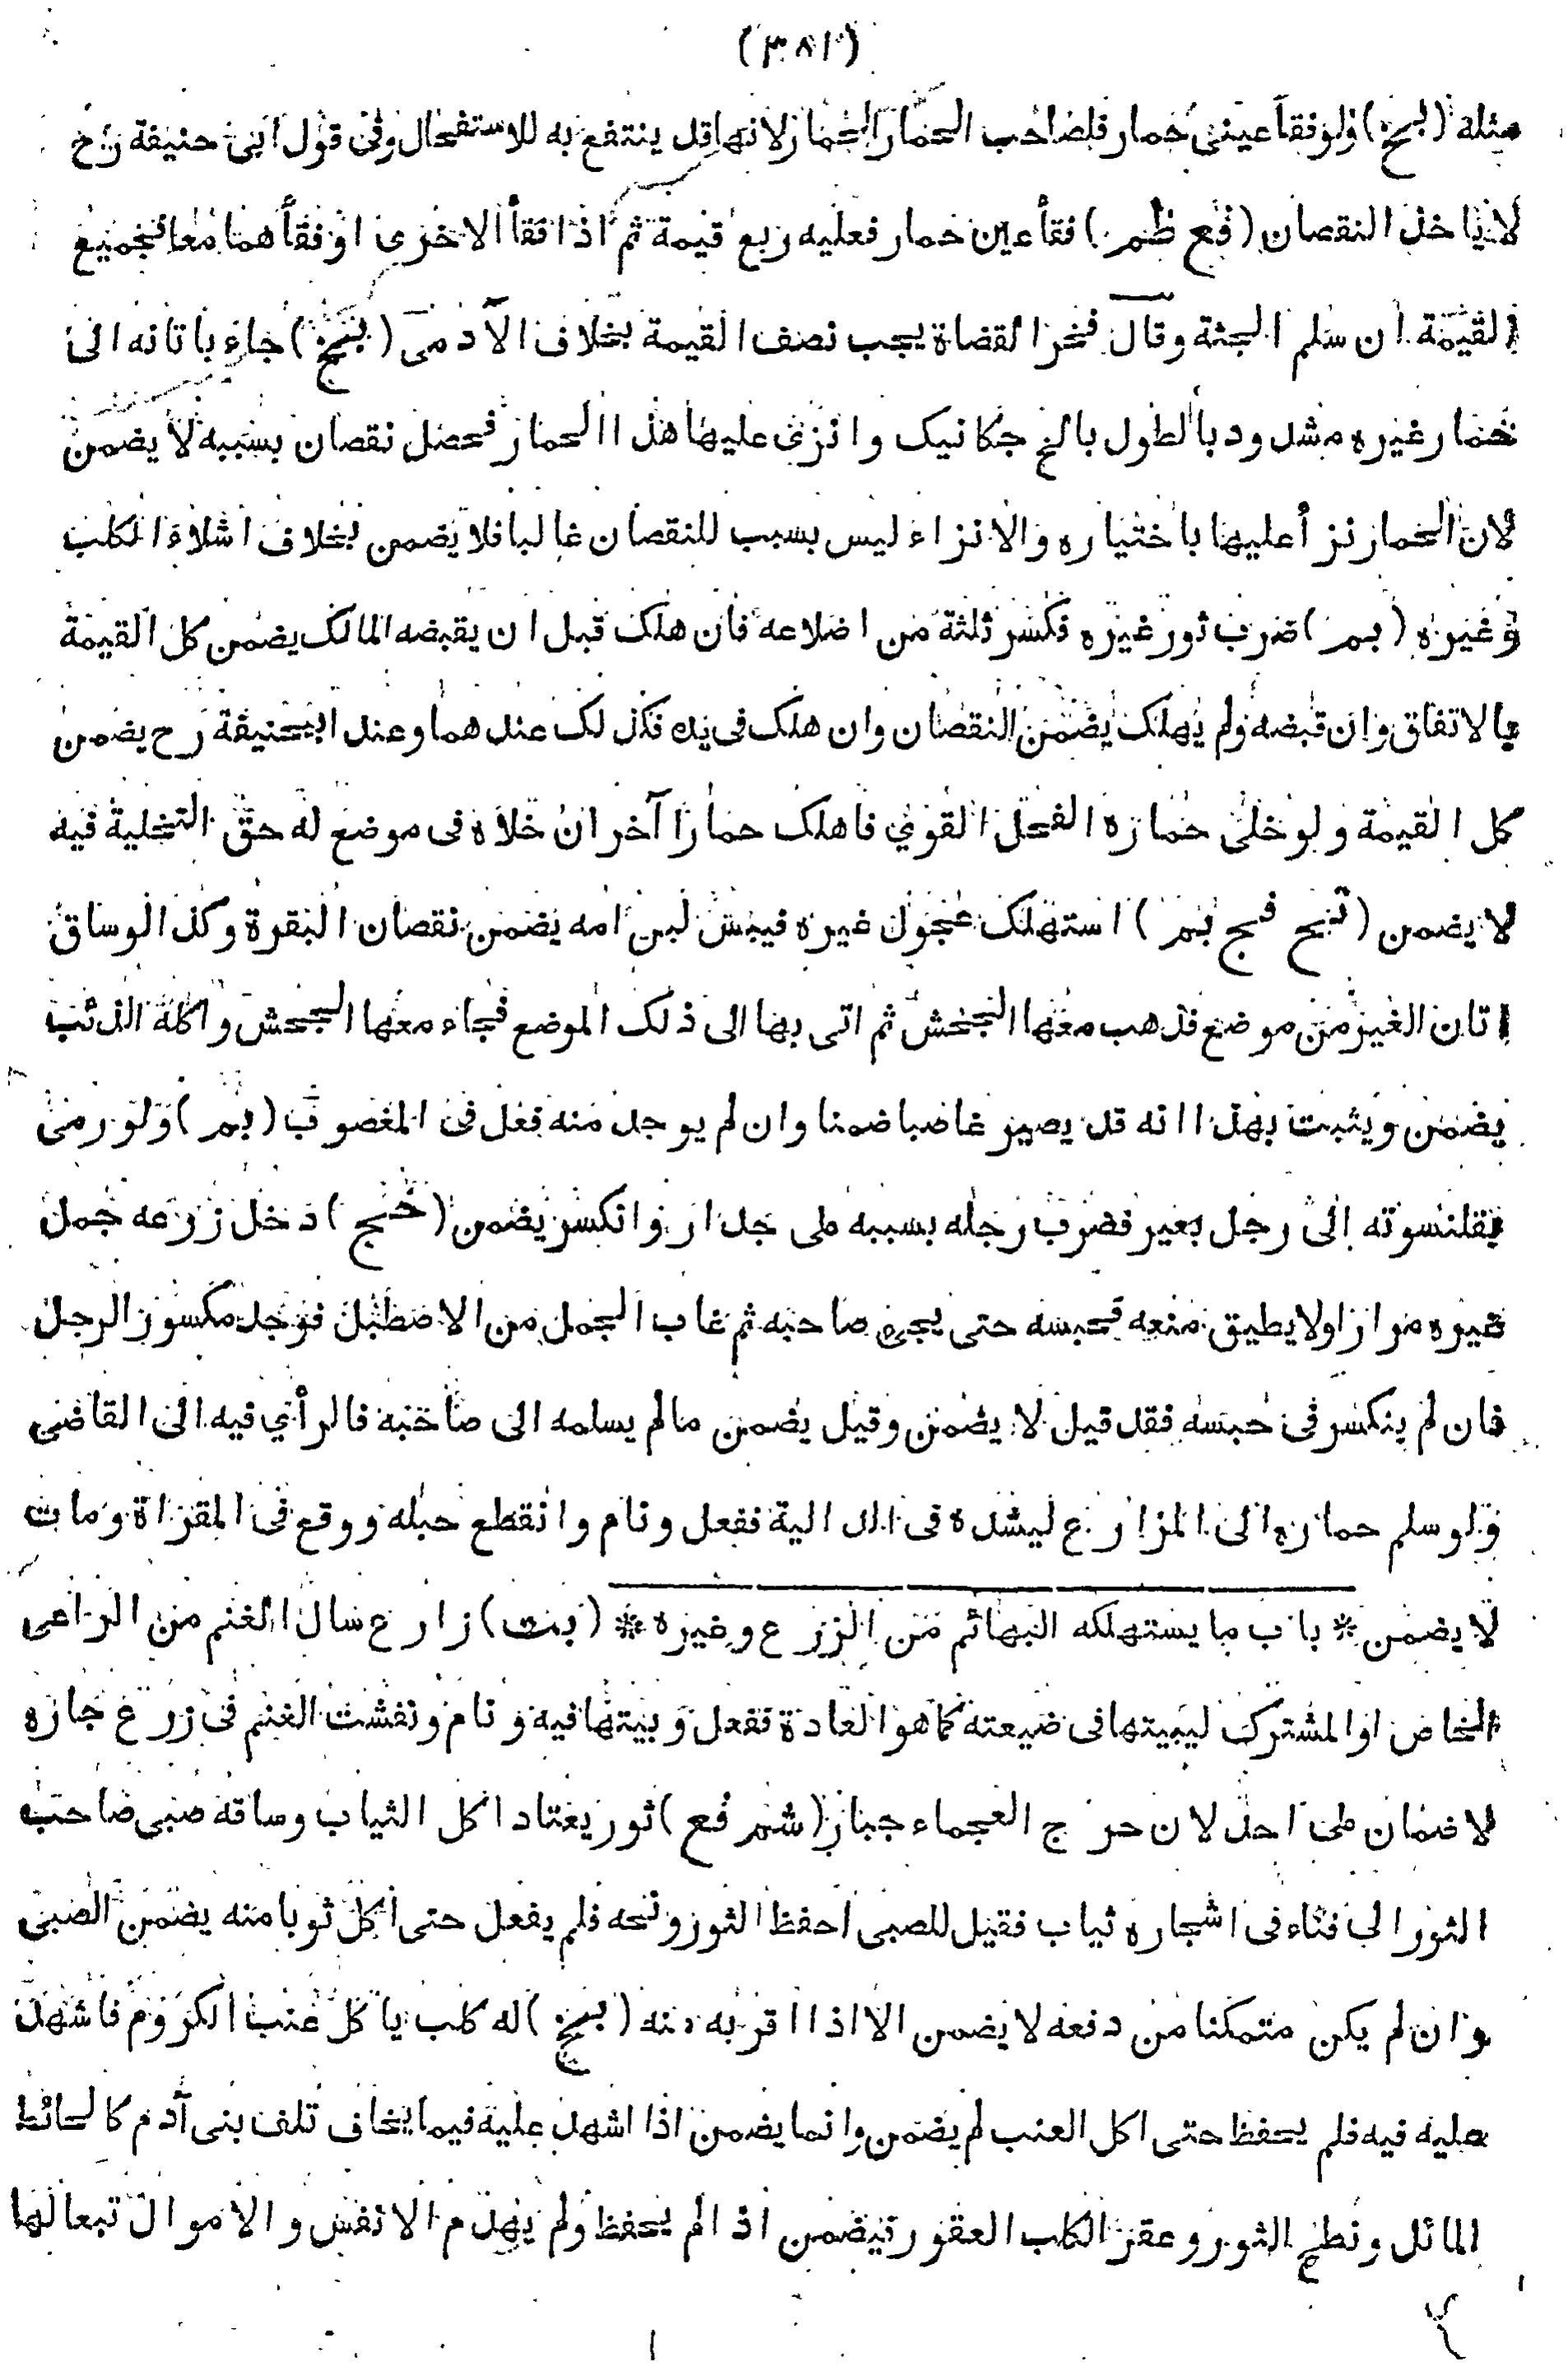 (٣٨١)
مثله (بخ) ولو فقأ عينى حمار فلصاحب الحمار الحمار لانها قل ينتفع به للاستفحال وفى قول ابى حنيفة رح
لا ياخذ النقصان (فع ظم) فقأ عين حمار فعليه ربع قيمة ثم اذا فقأ الاخرى او فقأهما معا فجميع
القيمة ان سلم الجثة وقال فخر القضاة يجب نصف القيمة بخلاف الآدمى (بخ) جاء باتانه الى
حمار غيره مشدود بالطول بالخ جكانيک وانزى عليها هذا الحمار فحصل نقصان بسببه لا يضمن
لان الحمار نزأ عليها باختياره والانزاء ليس بسبب للنقصان غالبا فلا يضمن بخلاف اشلاء الكلب
وغيره (بم) ضرب ثور غيره فكسر ثلثة من اضلاعه فان هلک قبل ان يقبضه المالک يضمن كل القيمة
بالاتفاق وان قبضه ولم يهلک يضمن النقصان وان هلک فى يده فكذلک عندهما وعند ابيحنيفة رح يضمن
كل القيمة ولو خلى حماره الفحل القوي فاهلک حمارا آخر ان خلاه فى موضع له حق التخلية فيه
لا يضمن (قبح فج بم) استهلک عجول غيره فيبس لبن امه يضمن نقصان البقرة وكذا لو ساق
اتان الغير من موضع فذهب معها الجحش ثم اتى بها الى ذلک الموضع فجاء معها الجحش واكله الذئب
يضمن ويثبت بهذا انه قد يصير غاصبا ضمنا وان لم يوجد منه فعل فى المغصوب (بم) ولو رمى
بقلنسوته الى رجل بعير فضرب رجله بسببه على جدار وانكسر يضمن (خج) دخل زرعه جمل
غيره مرارا ولا يطيق منعه فحبسه حتى يجئ صاحبه ثم غاب الجمل من الاصطبل فوجد مكسور الرجل
فان لم ينكسر فى حبسه فقد قيل لا يضمن وقيل يضمن ما لم يسلمه الى صاحبه فالرأي فيه الى القاضى
ولو سلم حماره الى المزارع ليشده فى الدالية ففعل ونام وانقطع حبله ووقع فى المقراة ومات
لا يضمن * باب ما يستهلكه البهائم من الزرع وغيره * (بنت) زارع سال الغنم من الراعى
الخاص او المشترک ليبيتها فى ضيعته كما هو العادة ففعل وبيتها فيه ونام ونفشت الغنم فى زرع جاره
لا ضمان على احد لان حرج العجماء جبار (شم فع) ثور يعتاد اكل الثياب وساقه صبى صاحب
الثور الى فناء فى اشجاره ثياب فقيل للصبى احفظ الثور ونحه فلم يفعل حتى اكل ثوبا منه يضمن الصبى
وان لم يكن متمكنا من دفعه لا يضمن الا اذا قربه منه (بخ) له كلب ياكل عنب الكروم فاشهد
عليه فيه فلم يحفظ حتى اكل العنب لم يضمن وانما يضمن اذا اشهد عليه فيما يخاف تلف بنى آدم كالحائط
المائل ونطح الثور وعقر الكلب العقور فيضمن اذا لم يحفظ ولم يهدم الانفس والاموال تبعا لها